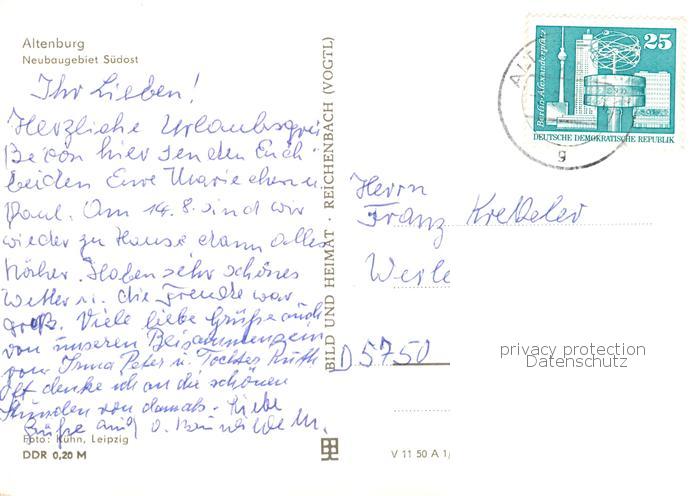 Altenburg
Neubaugebiet Südost
Ihr Lieben!
Herzliche Urlaubsgrüs
von hier senden Euch
beiden Eure Mariechen u.
Paul. Am 14.8. sind wir
wieder zu Hause dann alles
näher. Haben sehr schönes
Wetter u. die Freude war
groß. Viele liebe Grüße auch
von unseren Beisammensein
von Irma Peter u. Tochter Ruth
Oft denke ich an die schönen
Stunden von damals. Liebe
Grüße auch
Foto: Kühn, Leipzig
DDR 0,20 M
BILD UND HEIMAT · REICHENBACH (VOGTL)
V 11 50 A 1/
Berlin-Alexanderplatz
25
DEUTSCHE DEMOKRATISCHE REPUBLIK
ALT
g
Herrn
Franz
D 5750
privacy protection
Datenschutz